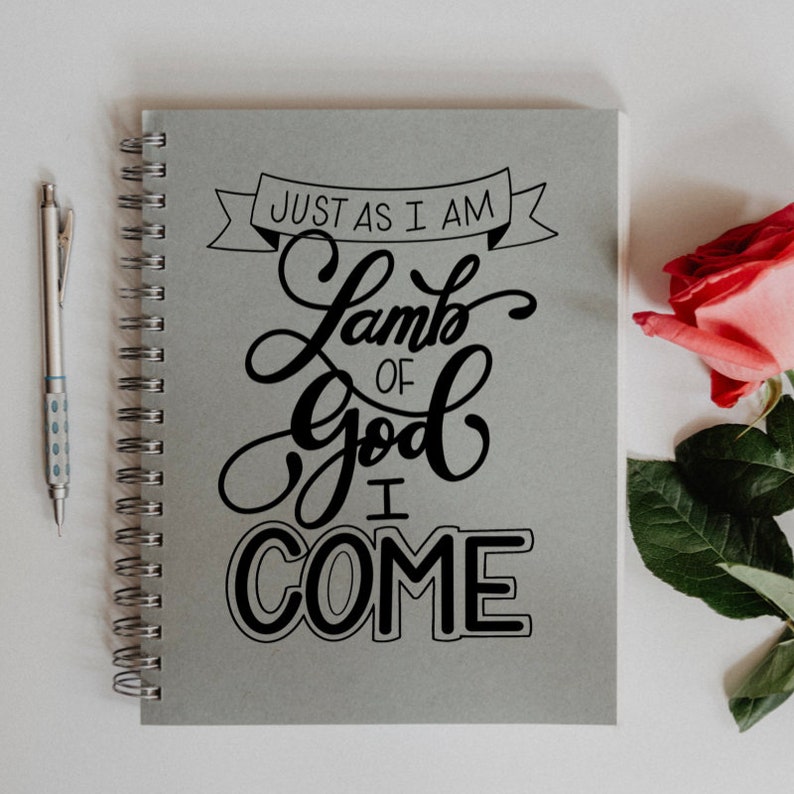 JUST AS I AM
Lamb
OF
God
I
COME